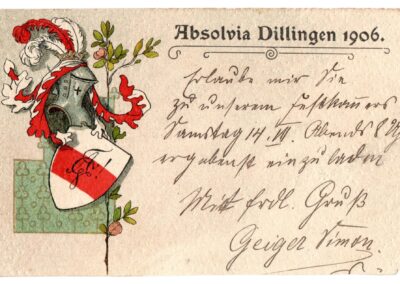 Absolvia Dillingen 1906.
Erlaube mir Sie
zu unserem Festkomers
Samstag 14. VII. Abends 8 Uh
ergebenst einzuladen
Mitt frdl. Gruß
Geiger Simon.